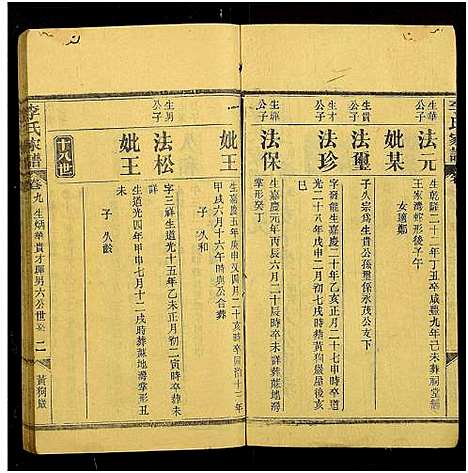 李氏家譜
生華公子
法元
生乾隆二十二年丁丑卒咸豐九年己未葬祠堂
王家灣蛇形後子午
妣某
女適鄭
生貴公子
法璽
子久宗爲生貴公孫璽係永茂公支下
生才公子
法珍
字 龍生嘉慶二十年乙亥正月二十七申時卒道
光二十八年戊申二月亥巳時葬黃狗巖屋後亥
巳
生 公子
法保
生嘉慶元年丙辰六月二十辰時卒未詳葬蘇地灣
掌形癸丁
妣王
生嘉慶五年庚申又四月二十亥時卒同治十三年
甲戌六月十六午時與公合葬
子 久和
生男公子
法松
字三祥生道光十五年乙未正月初二寅時卒葬未
詳
妣王
生道光四年甲申七月十二戌時葬蘇地灣掌形丑
未
子 久齡
十八世
李氏家譜
卷九
生炳華貴才暉男六公世系
二
黃狗巖